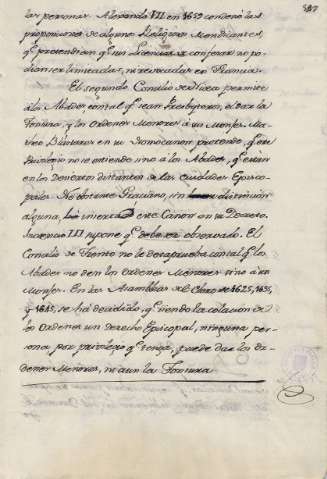 387
las personas. Alexandro VII en 1659 condenó las
proposiciones de algunos Religiosos Mendicantes,
q.e pretendian q.e un Licencias de confesar no po-
dian ser limitadas, ni revocadas en Francia.
El segundo Concilio de Nicea permite
á los Abades con tal q.e sean Presbyteros, el dar la
Tonsura, y los Ordenes Menores á un Monjes. Ma-
theo Blastares en su Nomocanon pretende, q.e este
Privilegio no se entiende sino á los Abades, q.e estan
en los Desiertos distantes de las Ciudades Episco-
pales. No obstante Graciano, sin distincion
alguna, inserta este Canon en su Decreto.
Inocencio III supone q.e debe ser observado. El
Concilio de Trento no le desaprueba con tal q.e los
Abades no den los Ordenes Menores sino á sus
Monjes. En las Asambleas del Clero de 1625, 1635,
y 1645, se há decidido, q.e siendo la colacion de
los Ordenes un derecho Episcopal, ninguna per-
sona por privilegio q.e tenga, puede dar los Or-
denes Menores, ni aun la Tonsura